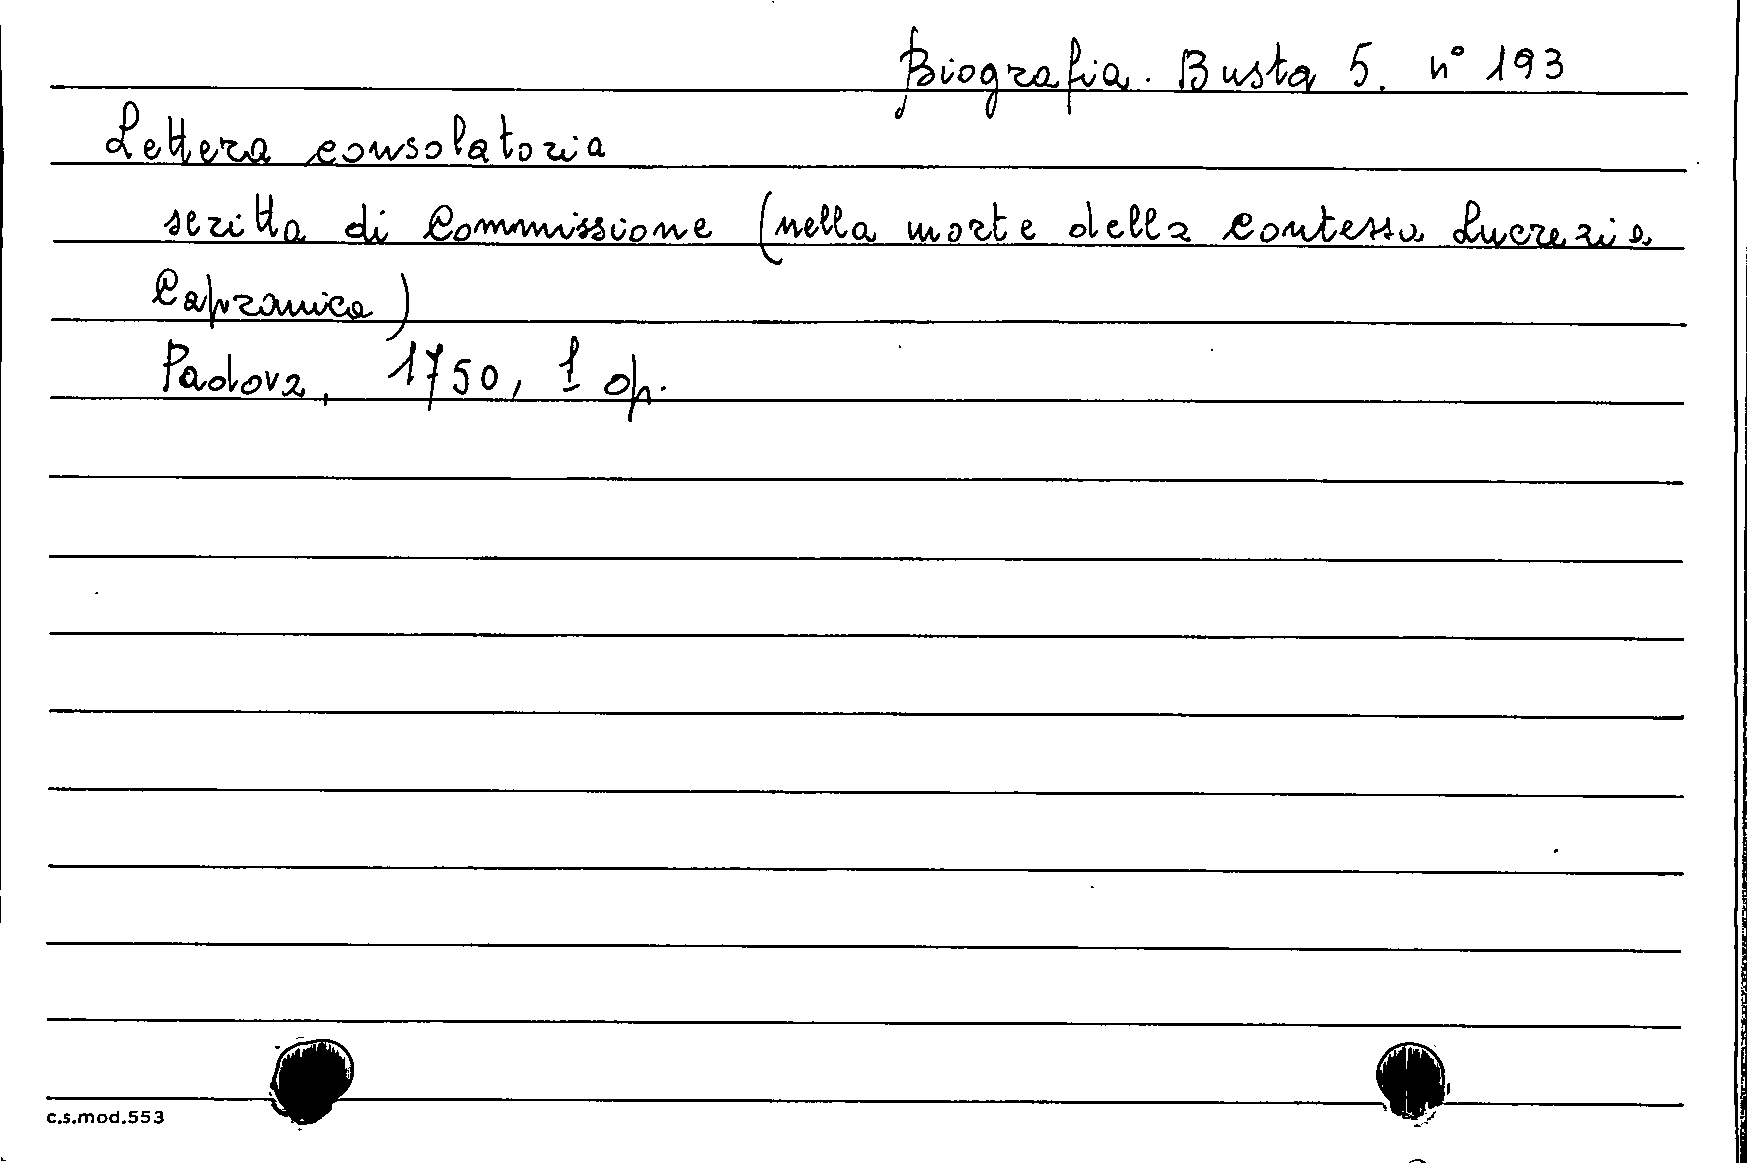 Biografia. Busta 5. n° 193
Lettera consolatoria
scritta di Commissione (nella morte della Contessa Lucrezia
Capranica)
Padova, 1750, 1 op.
c.s.mod.553